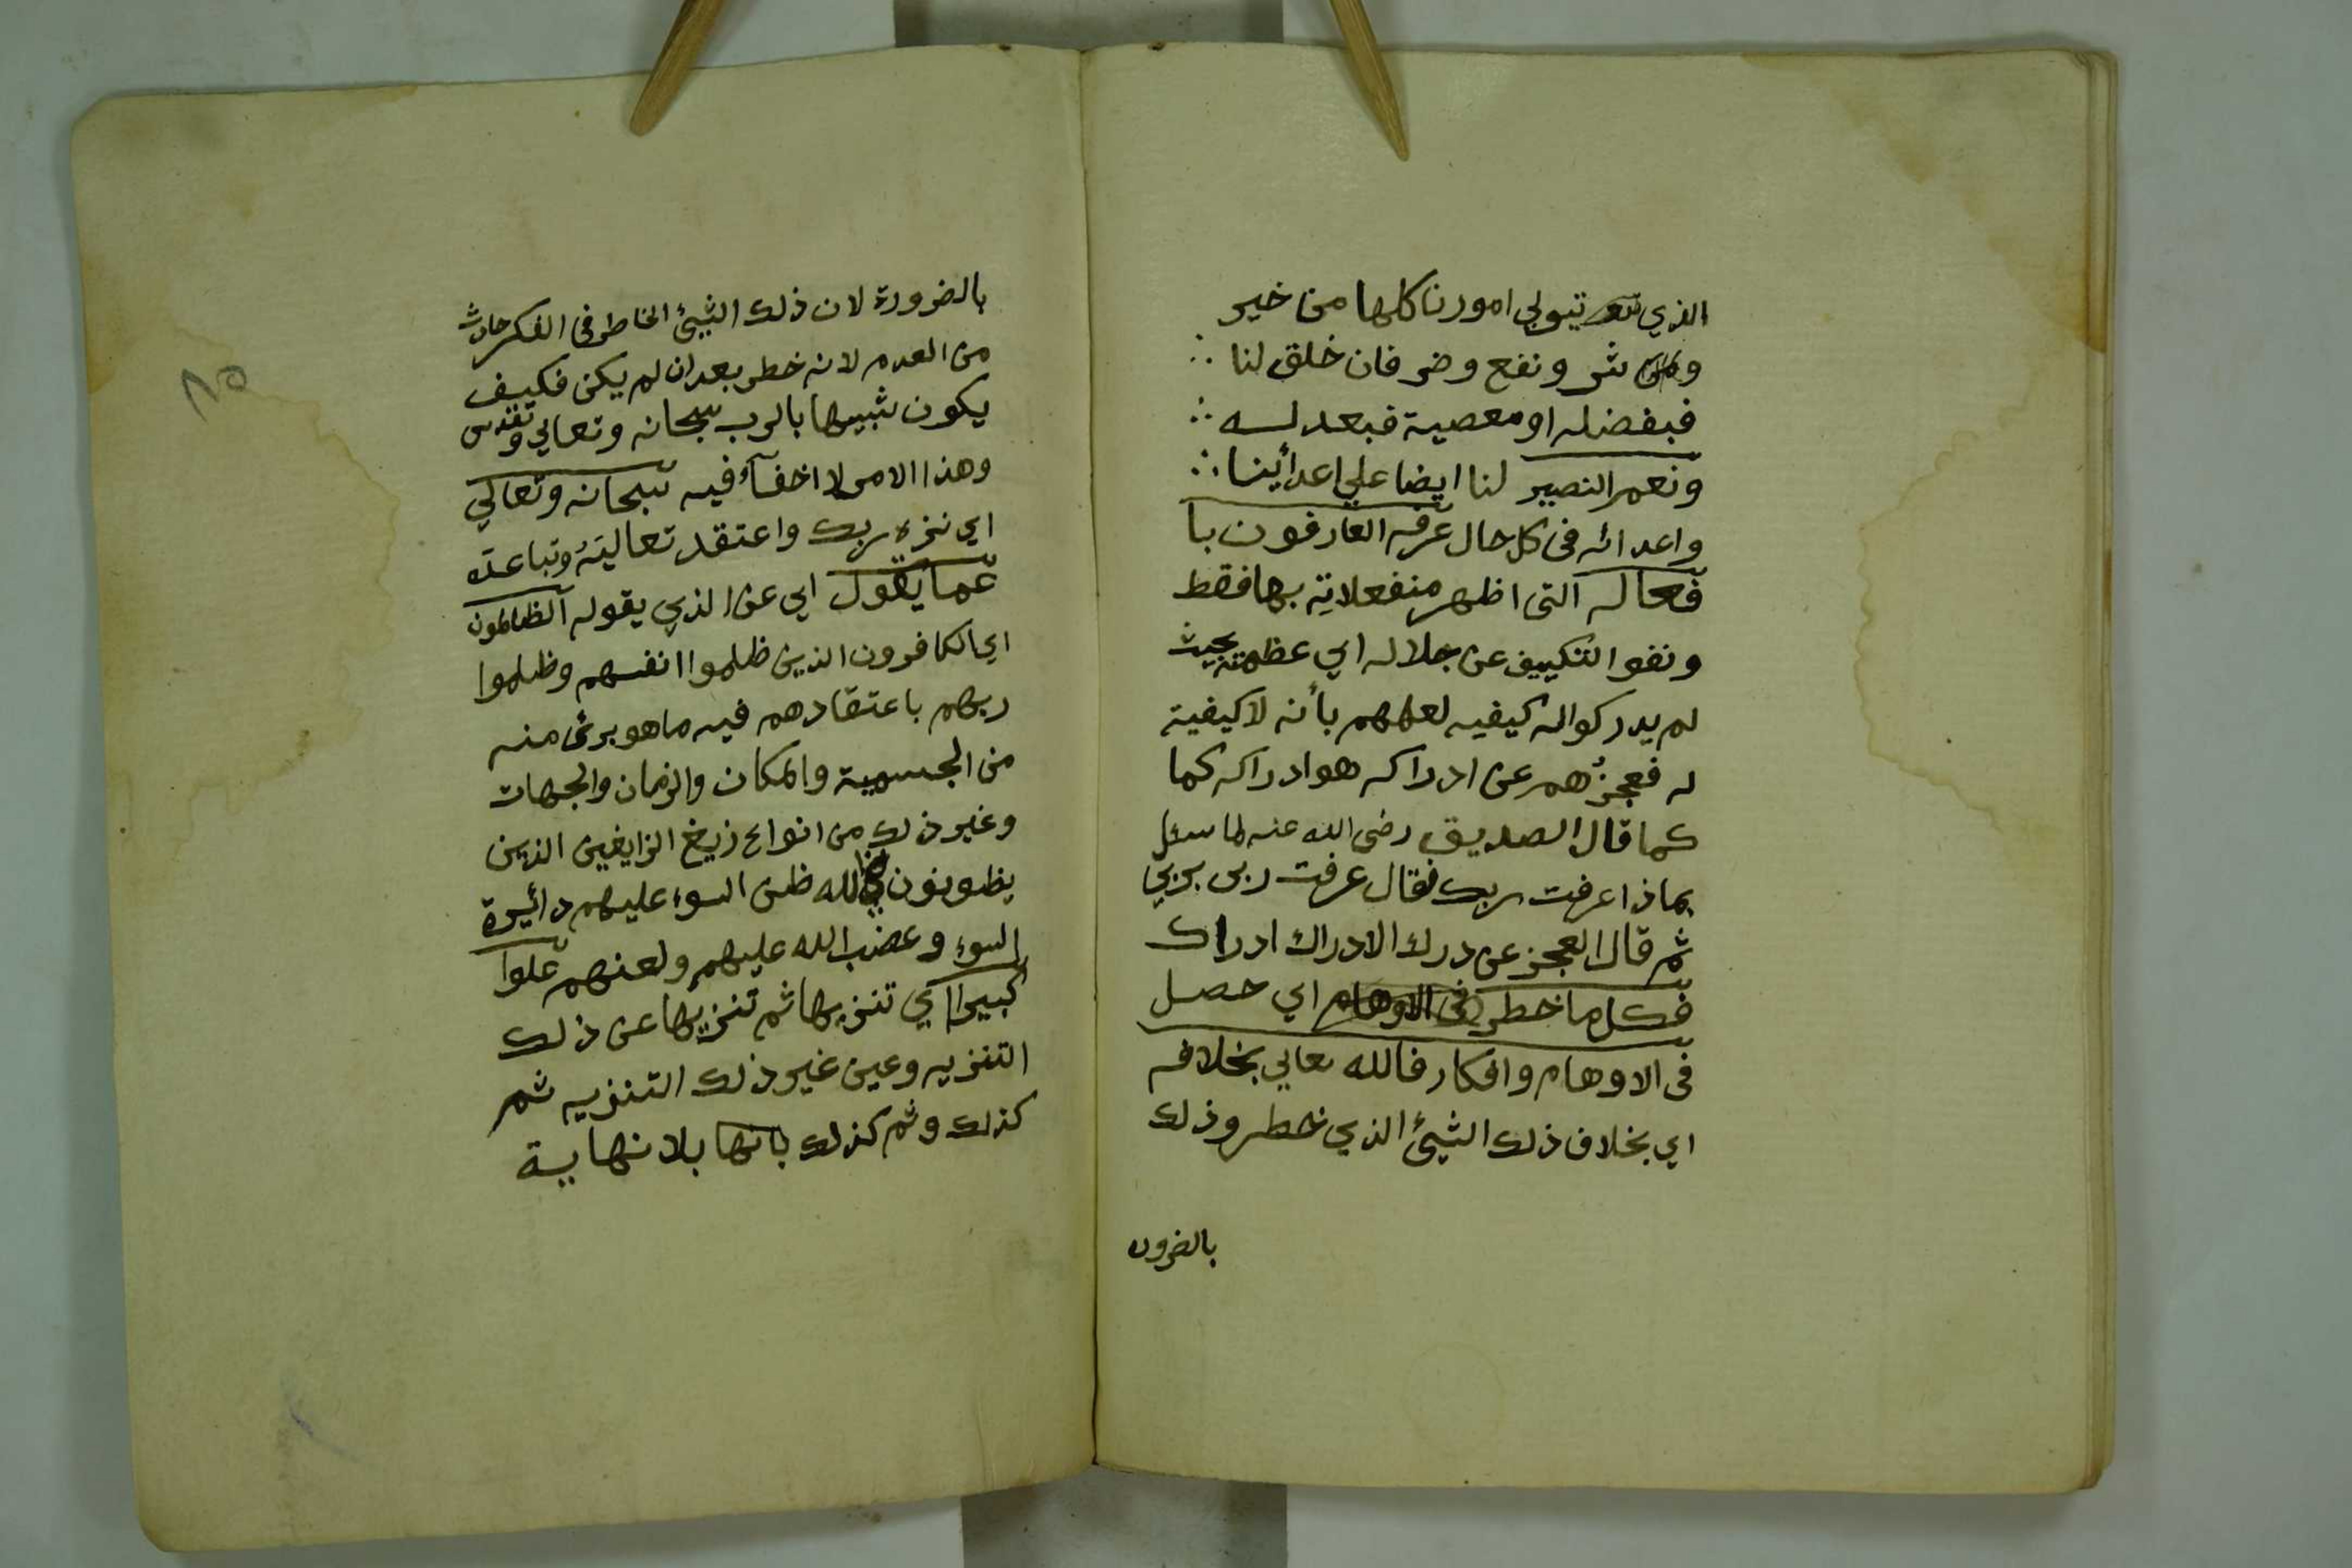 الذي يتولى امورنا كلها من خير
و شر ونفع وضر فان خلق لنا ∴
فبفضله او معصية فبعدلــه ∴
ونعم النصير لنا ايضا علي اعدأينا ∴
واعدائه فى كل حال عرفه العارفون با
فعاله التى اظهر منفعلاتِه بها فقط
ونفوا التكييف عن جلاله اي عظمته بحيث
لم يدركوا له كيفيه لعلمهم بأنه لا كيفية
له فعجزُهم عن ادراكه هو ادراكه كما
كما قال الصديق رضى الله عنه لما سئل
بماذا عرفت ربك فقال عرفت ربى بربي
ثم قال العجز عن درك الادراك ادراك
فكل ما خطر فى الاوهام اي حصل
فى الاوهام وافكار فالله تعالي بخلافه
اي بخلاف ذلك الشيئ الذي خطر وذلك
بالضرور
١٥
بالضرورة لان ذلك الشيئ الخاطر فى الفكر حادث
من العدم لانه خطر بعد ان لم يكن فكيف
يكون شبيها بالرب سبحانه وتعالي وتقدس
وهذا الامر لا اخفآء فيه سبحانه وتعالي
اي نزه ربك واعتقد تعاليَهُ وتباعده
عما يقول اي عن الذي يقوله الظالمون
اي الكافرون الذين ظلموا انفسهم وظلموا
ربهم باعتقادهم فيه ما هو برئ منه
من الجسمية والمكان والزمان والجهات
وغير ذلك من انواع زيغ الزايغين الذين
يظونون بالله ظن السوء عليهم دائيرة
السوء وغضب الله عليهم ولعنهم علوا
كبيرا اي تنزيها ثم تنزيها عن ذلك
التنزيه وعين غير ذلك التنزيه ثم
كذلك وثم كذلك بانها بلا نهاية